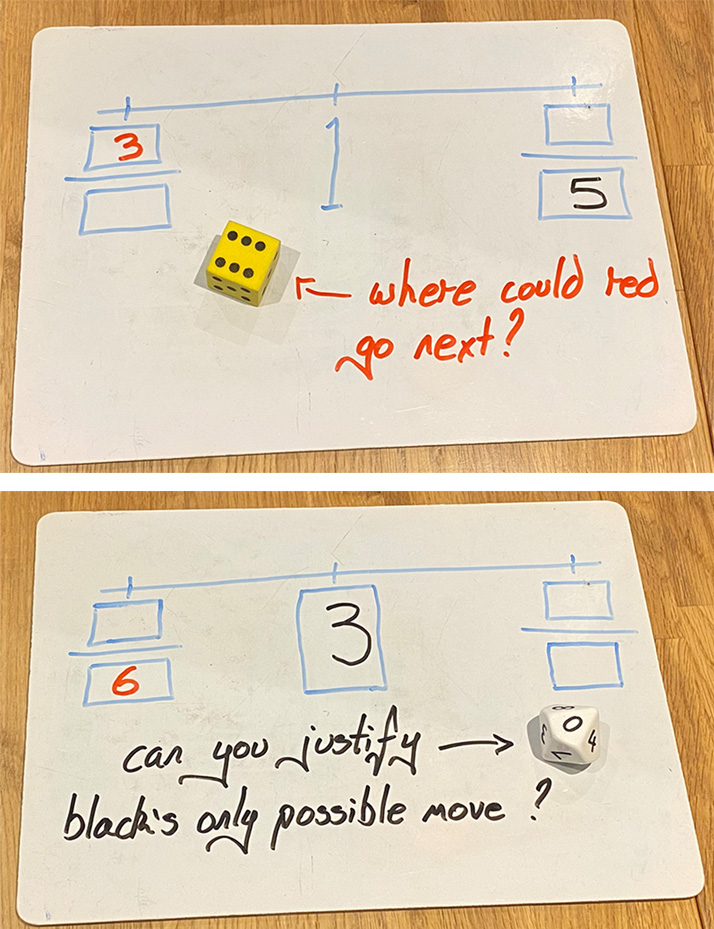 3
1
5
where could red
go next?
6
3
8
0
3
4
1
can you justify
black's only possible move ?